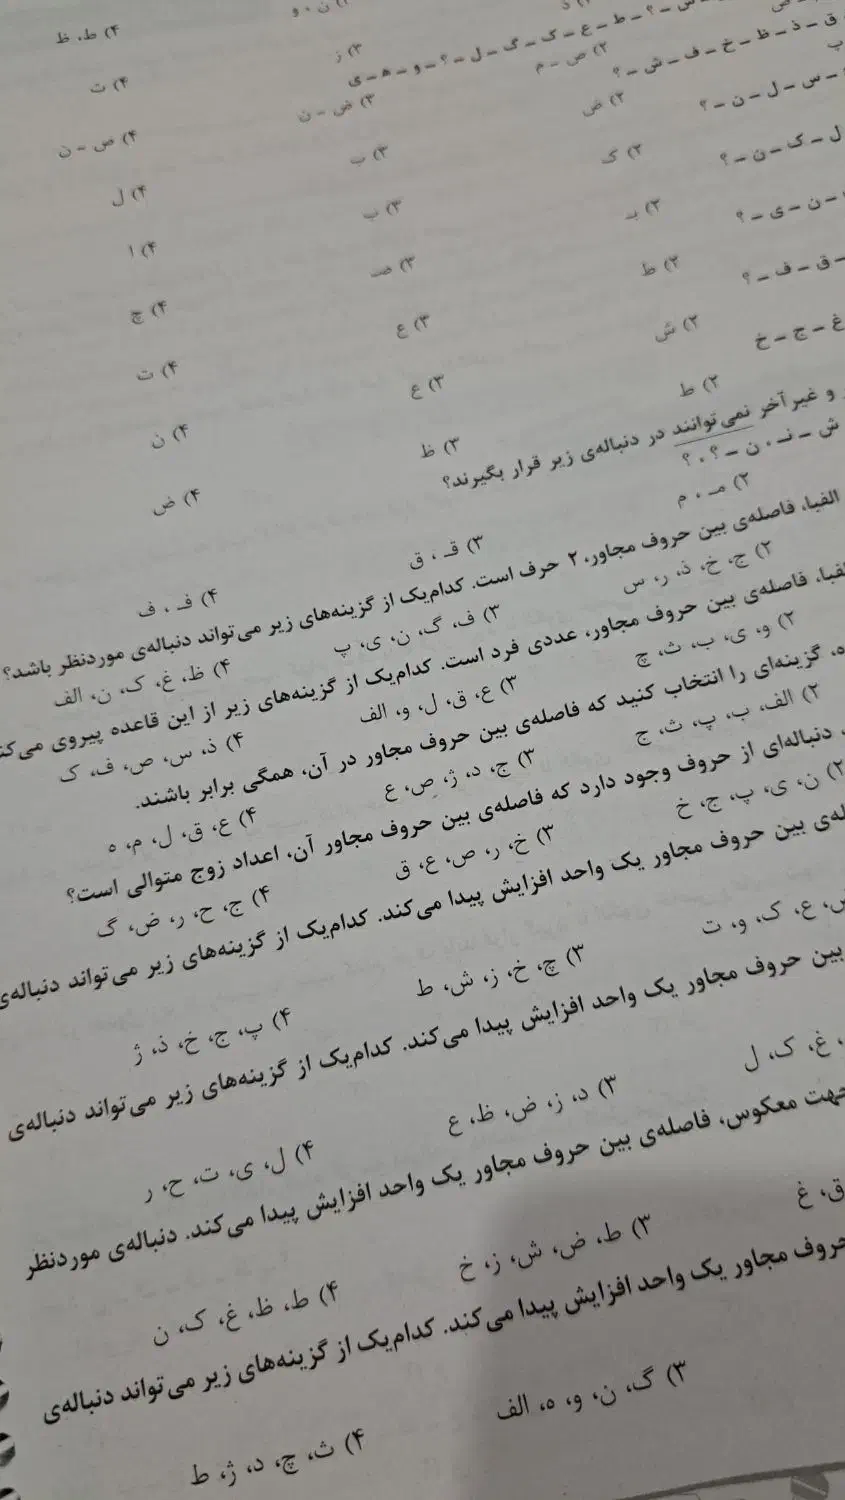 ۴) ط، ظ
س – ؟ – ط – ع – ک – گ – ل – ؟ – و – ه – ی
۳) ز
۴) ت
ق – ذ – ظ – خ – ف – ش – ؟
۲) ص – م
۳) ض – ن
۴) ص – ن
س – ل – ن – ؟
۲) ض
۳) ب
۴) ل
ل – ک – ن – ؟
۲) ک
۳) ب
۴) ا
ن – ی – ؟
۲) بـ
۳) صـ
۴) چ
ق – ف – ؟
۲) ط
۳) ع
۴) ت
غ – ج – خ
۲) ش
۳) ع
۴) ن
۲) ط
۳) ظ
۴) ض
و غیر آخر نمی‌توانند در دنباله‌ی زیر قرار بگیرند؟
ش – نـ ، ن – ؟ ، ؟
۲) مـ ، م
۳) قـ ، ق
۴) فـ ، ف
الفبا، فاصله‌ی بین حروف مجاور، ۲ حرف است. کدام‌یک از گزینه‌های زیر می‌تواند دنباله‌ی موردنظر باشد؟
۲) ج، خ، ذ، ر، س
۳) ف، گ، ن، ی، پ
۴) ظ، غ، ک، ن، الف
فاصله‌ی بین حروف مجاور، عددی فرد است. کدام‌یک از گزینه‌های زیر از این قاعده پیروی
۲) و، ی، ب، ث، چ
۳) ع، ق، ل، و، الف
۴) ذ، س، ص، ف، ک
گزینه‌ای را انتخاب کنید که فاصله‌ی بین حروف مجاور در آن، همگی برابر باشند.
۲) الف، ب، پ، ث، ج
۳) ج، د، ژ، ص، ع
۴) ع، ق، ل، م، ه
دنباله‌ای از حروف وجود دارد که فاصله‌ی بین حروف مجاور آن، اعداد زوج متوالی است؟
۲) ن، ی، پ، ج، خ
۳) خ، ر، ص، ع، ق
۴) ج، ح، ر، ض، گ
بین حروف مجاور یک واحد افزایش پیدا می‌کند. کدام‌یک از گزینه‌های زیر می‌تواند دنباله‌ی
ع، ک، و، ت
۳) چ، خ، ز، ش، ط
۴) پ، ج، خ، ذ، ژ
بین حروف مجاور یک واحد افزایش پیدا می‌کند. کدام‌یک از گزینه‌های زیر می‌تواند دنباله‌ی
غ، ک، ل
۳) د، ز، ض، ظ، ع
۴) ل، ی، ت، ح، ر
جهت معکوس، فاصله‌ی بین حروف مجاور یک واحد افزایش پیدا می‌کند. دنباله‌ی موردنظر
ق، غ
۳) ط، ض، ش، ز، خ
۴) ط، ظ، غ، ک، ن
حروف مجاور یک واحد افزایش پیدا می‌کند. کدام‌یک از گزینه‌های زیر می‌تواند دنباله‌ی
۳) گ، ن، و، ه، الف
۴) ث، چ، د، ژ، ط